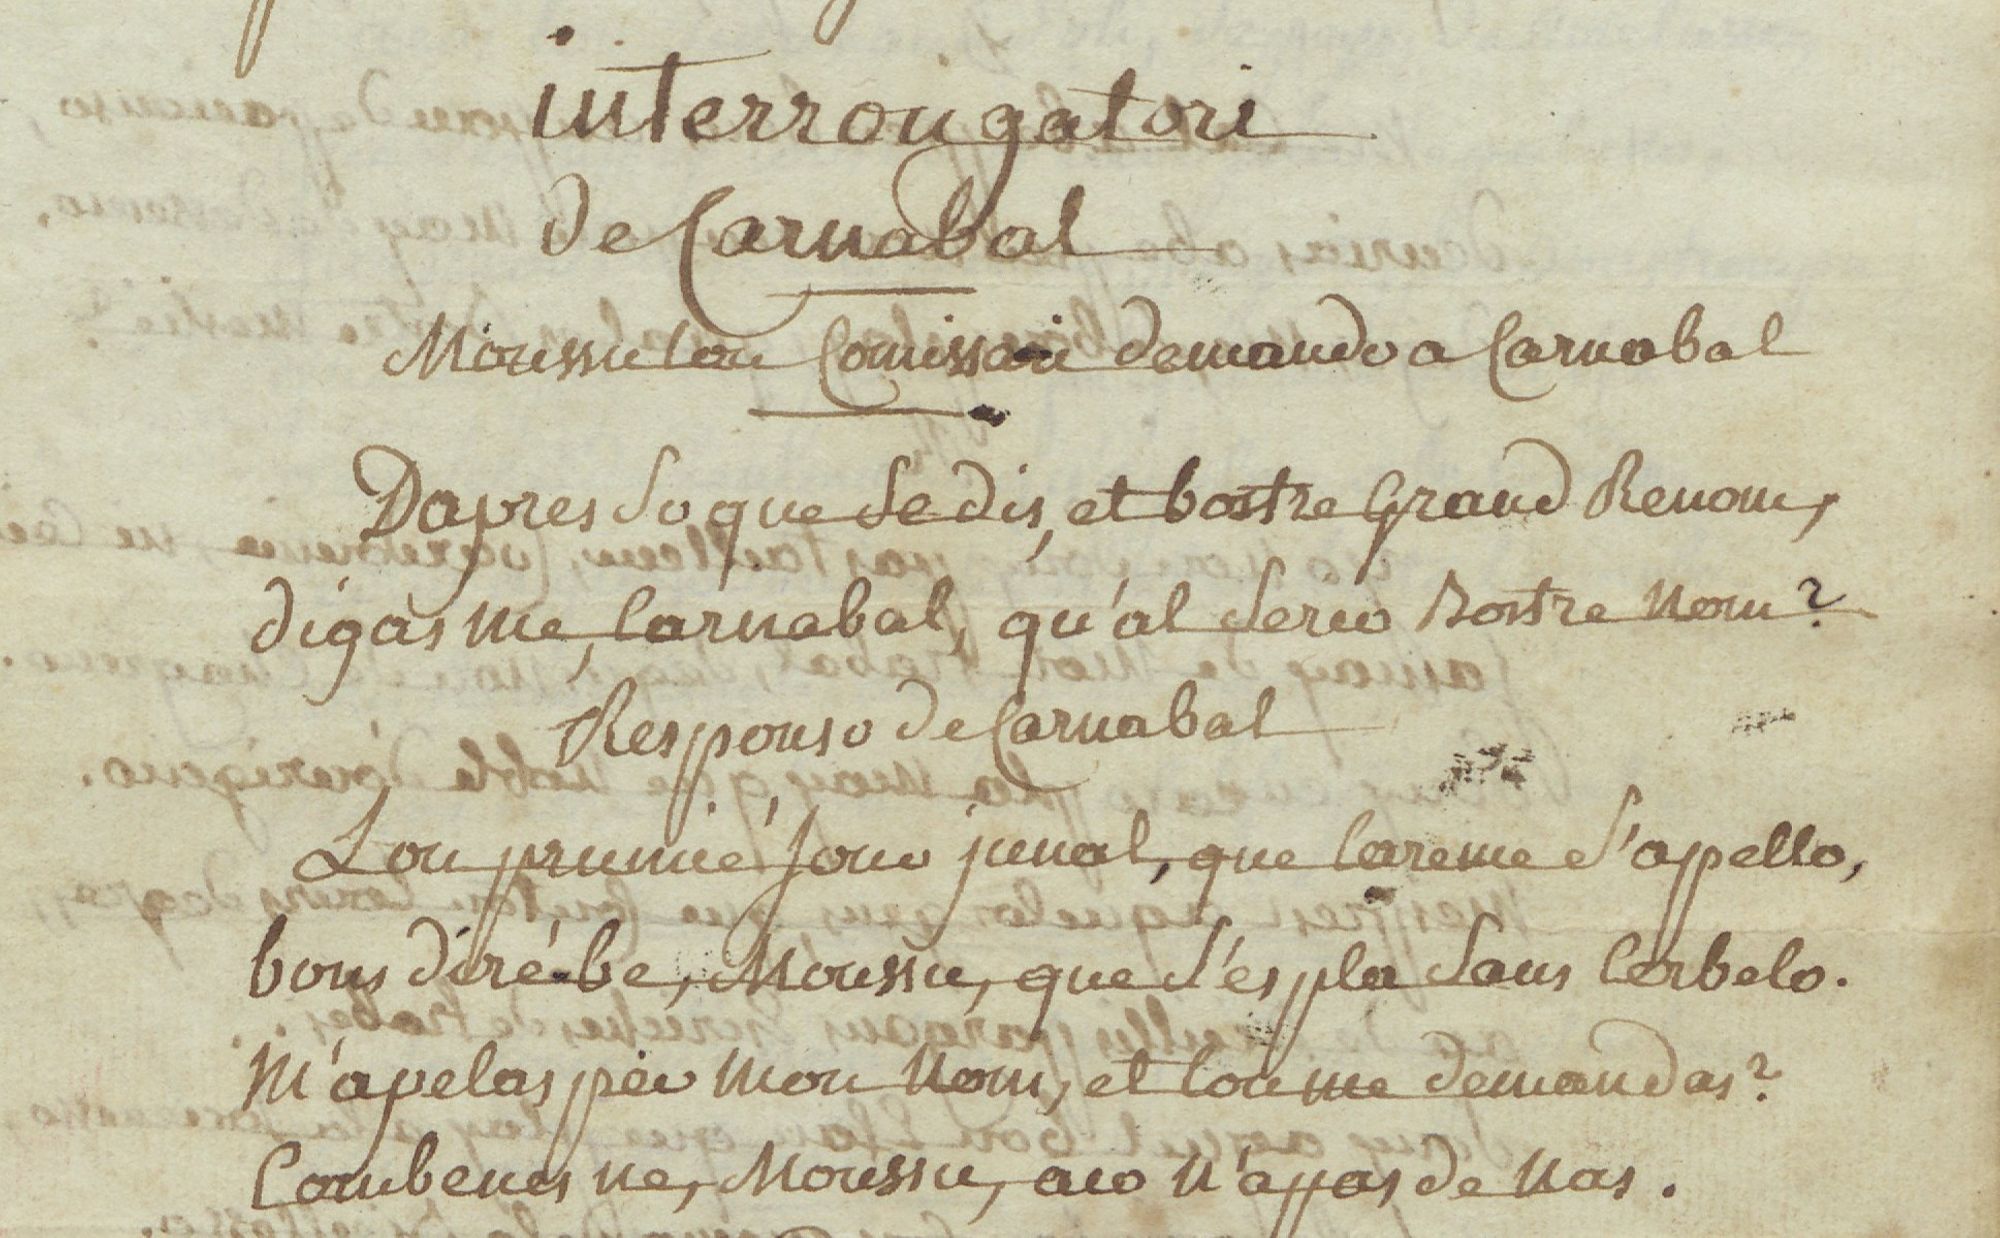 interrougatori
de Carnabal
Moussu lou Comissari demando a Carnabal
Dapres so que se dis, et bostre grand Renom,
digas me, Carnabal, qu'al serio bostre nom?
Responso de Carnabal
Lou prumié jour junal, que Careme s'apello,
bous diré be, Moussu, que s'es pla sans Cerbelo.
M'apelas per mou nom, et lou me demandas?
Coubenes ne, Moussu, aco n'a pas de nas.